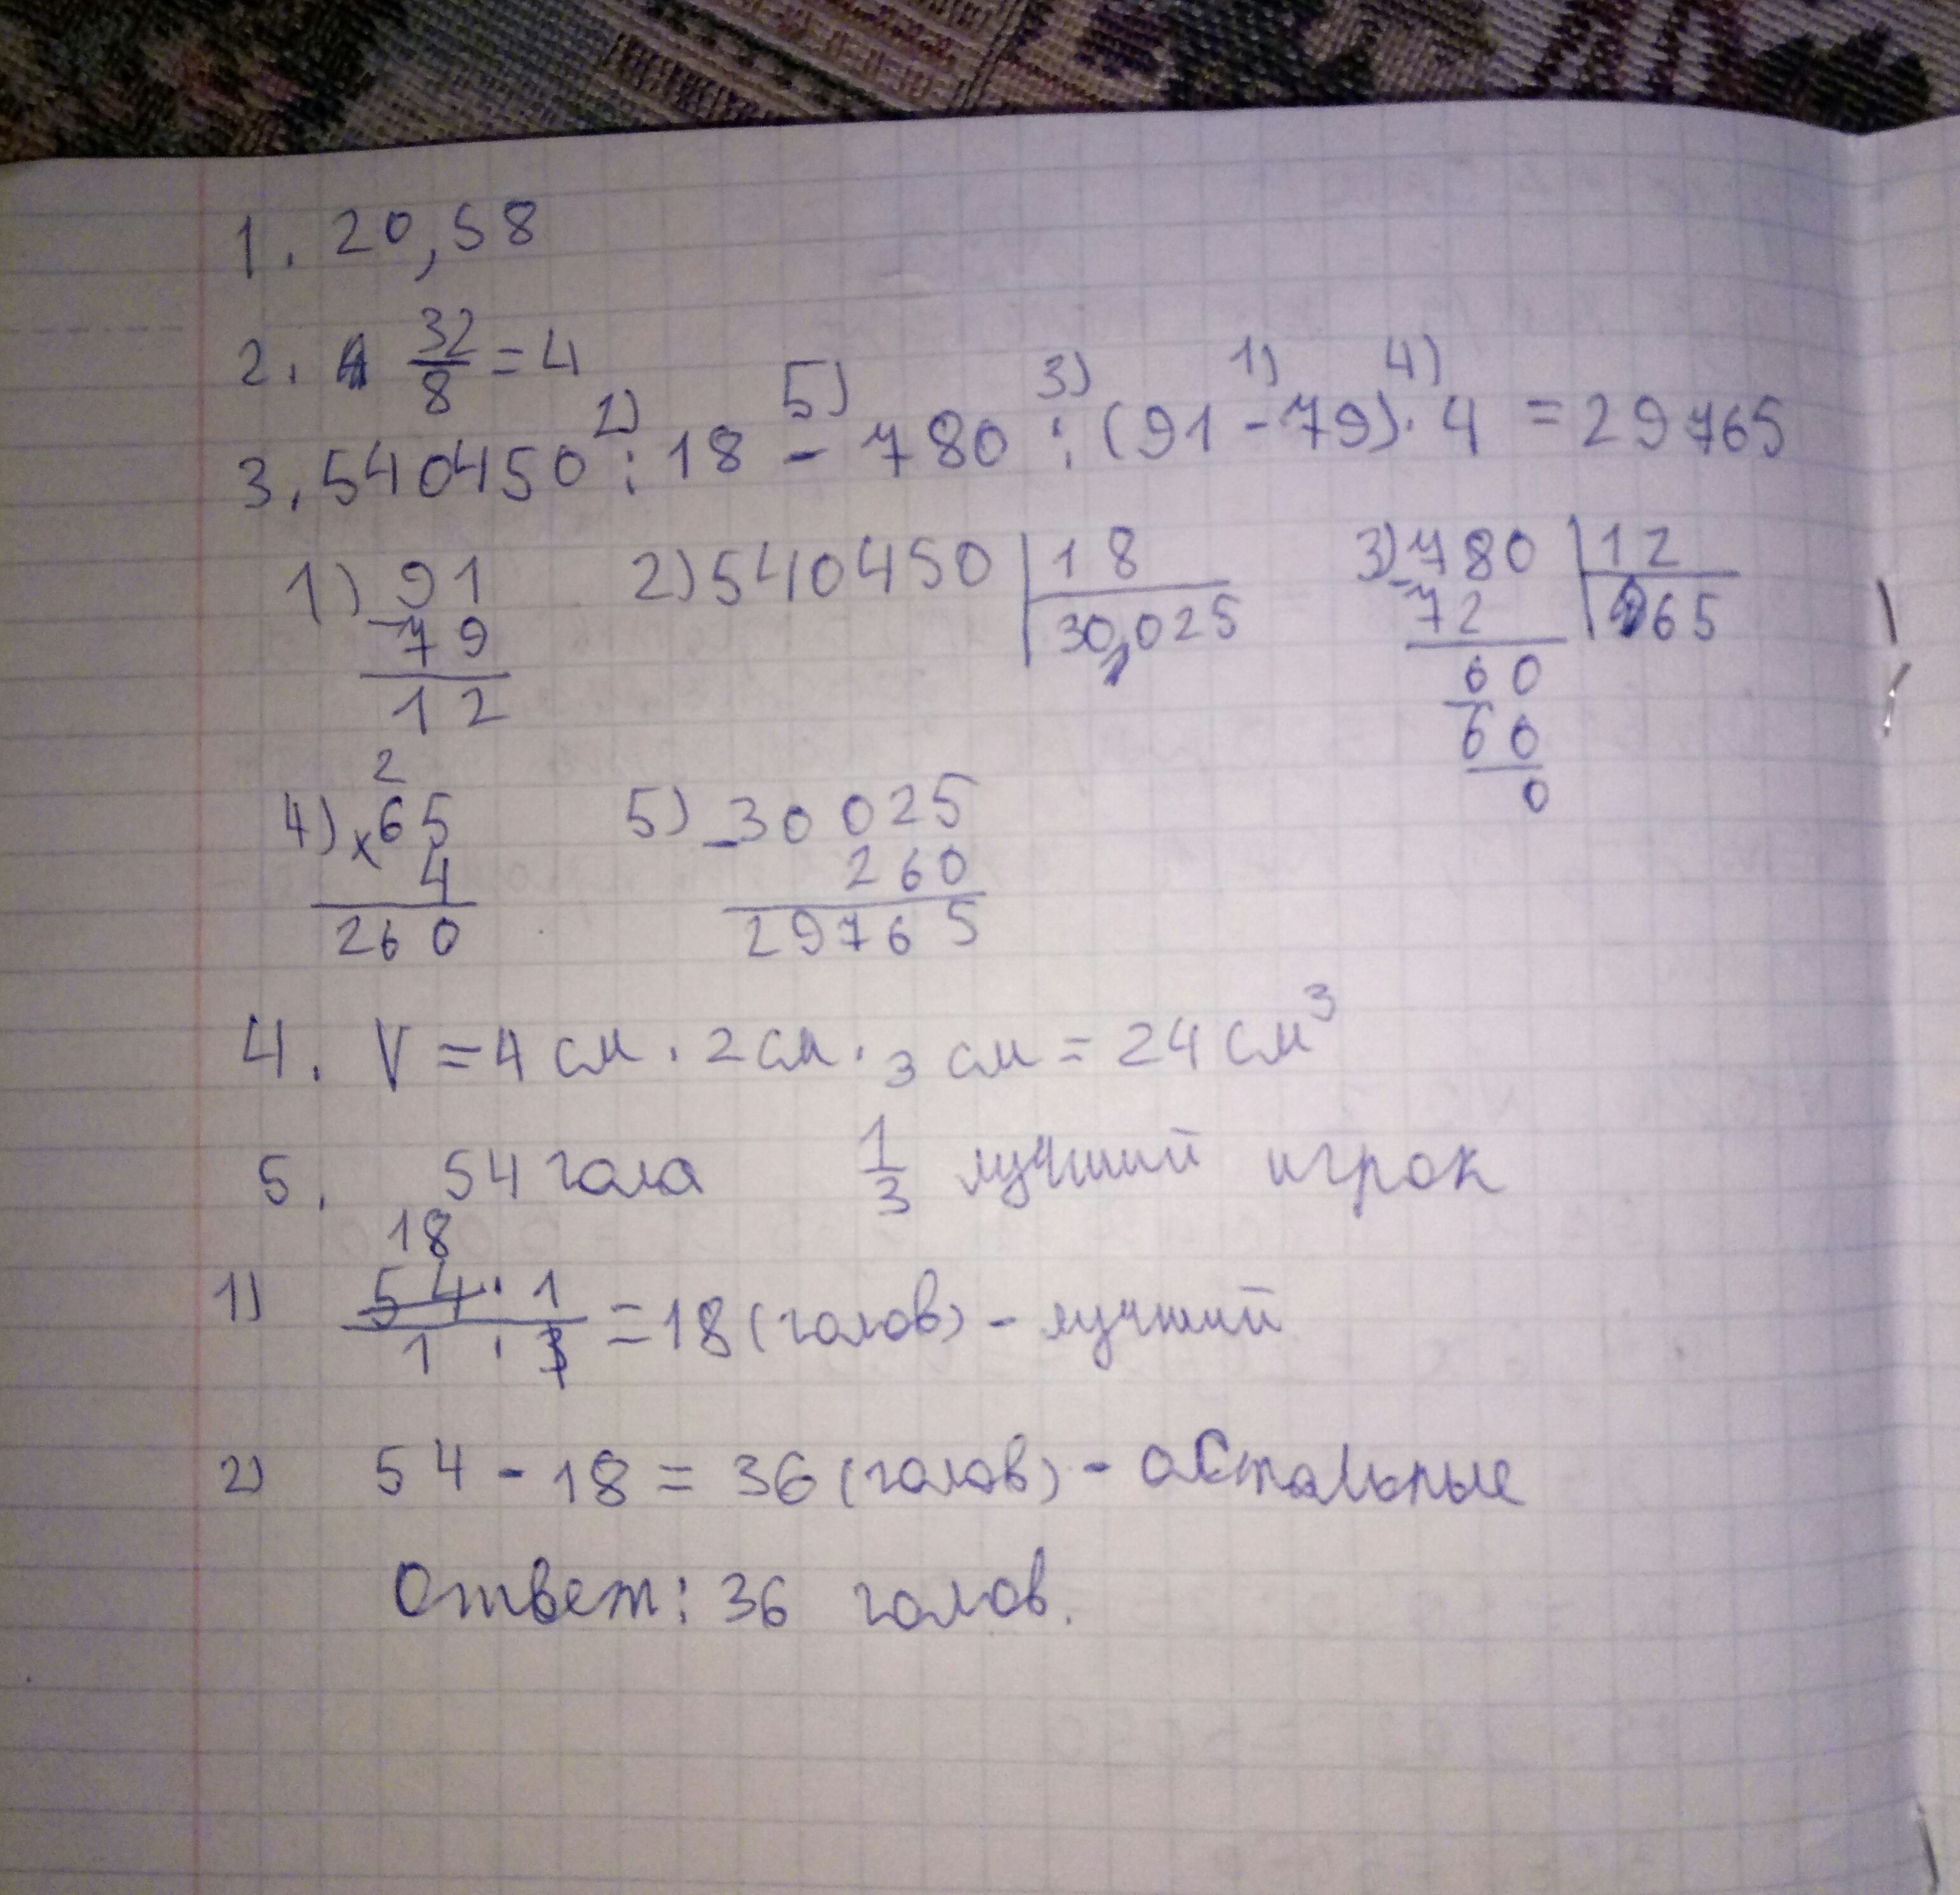 1. 20,58
2. 32/8 = 4
3. 540450 : 18 - 780 : (91 - 79) · 4 = 29765
2) 5) 3) 1) 4)
1) 91 - 79 12
2) 540450 | 18 30,025
3) 780 | 12 65
72
60
60
0
4) 2 65 × 4 260
5) 30025 - 260 29765
4. V = 4 см · 2 см · 3 см = 24 см³
5. 54 гола 1/3 лучший игрок
18
1) 54 · 1 / 1 · 3 = 18 (голов) - лучший
2) 54 - 18 = 36 (голов) - остальные
Ответ: 36 голов.